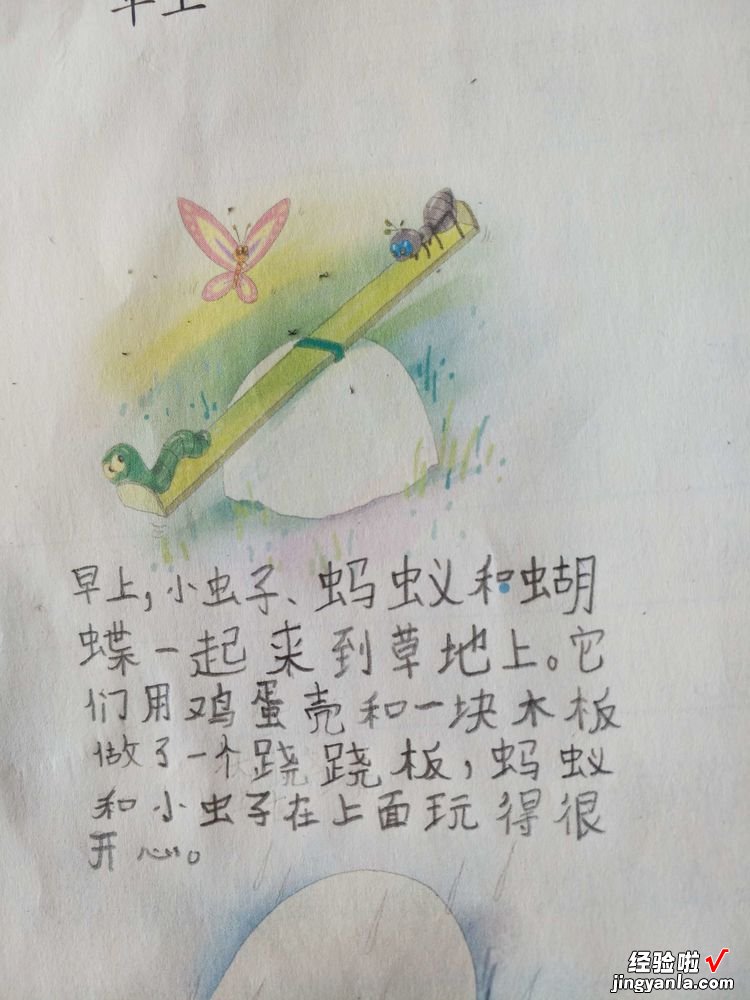 早上
早上，小虫子、蚂蚁和蝴
蝶一起来到草地上。它
们用鸡蛋壳和一块木板
做了一个跷跷板，蚂蚁
和小虫子在上面玩得很
开心。
经验啦√
jingyanla.com